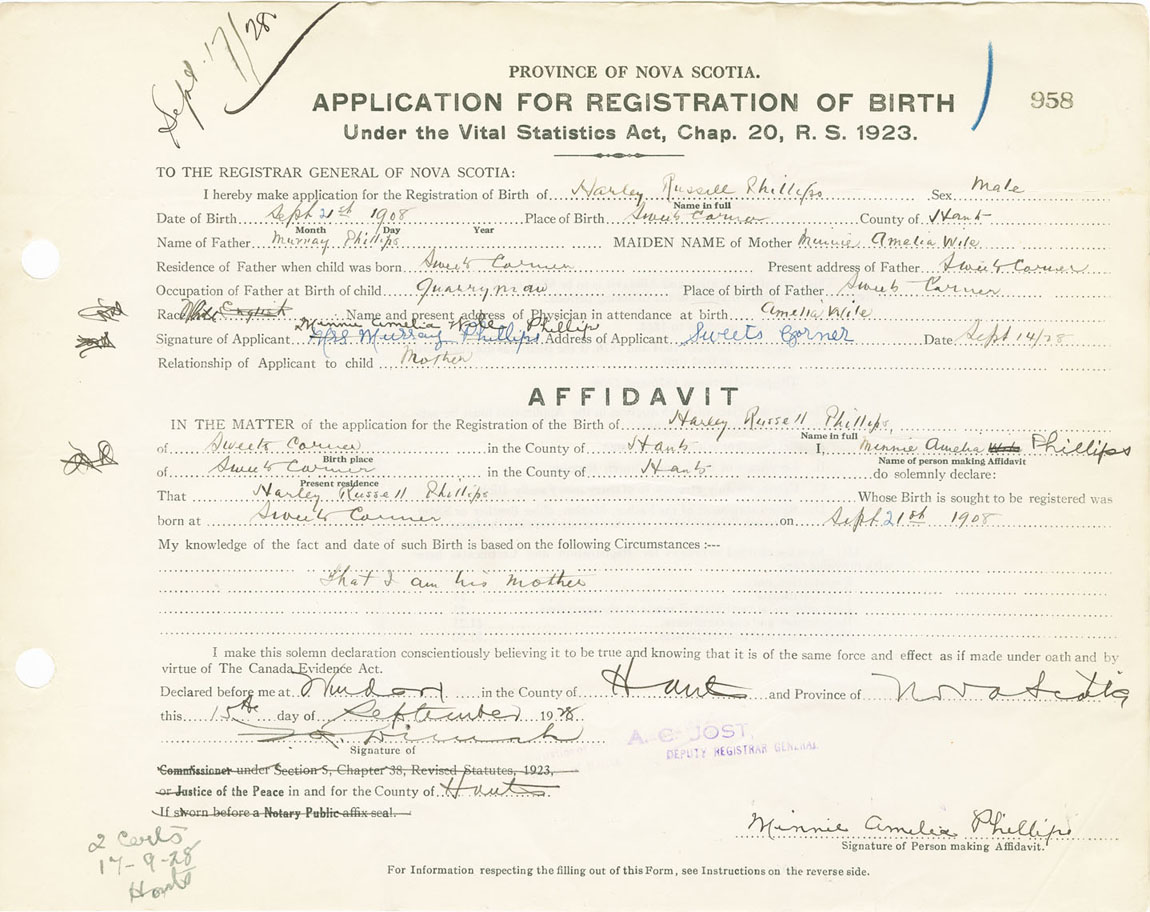 Sept. 17/28
PROVINCE OF NOVA SCOTIA.
APPLICATION FOR REGISTRATION OF BIRTH
958
Under the Vital Statistics Act, Chap. 20, R. S. 1923.
TO THE REGISTRAR GENERAL OF NOVA SCOTIA:
I hereby make application for the Registration of Birth of Harley Russell Phillips Sex Male
Name in full
Date of Birth Sept 21st 1908 Place of Birth Sweets Corner County of Hants
Month Day Year
Name of Father Murray Phillips MAIDEN NAME of Mother Minnie Amelia Wile
Residence of Father when child was born Sweets Corner Present address of Father Sweets Corner
Occupation of Father at Birth of child Quarryman Place of birth of Father Sweets Corner
Race English Name and present address of Physician in attendance at birth Amelia Wile
Minnie Amelia Phillips
Signature of Applicant Mrs Murray Phillips Address of Applicant Sweets Corner Date Sept 14/28
Relationship of Applicant to child Mother
AFFIDAVIT
IN THE MATTER of the application for the Registration of the Birth of Harley Russell Phillips,
Name in full
of Sweets Corner in the County of Hants I, Minnie Amelia Phillips
Birth place Name of person making Affidavit
of Sweets Corner in the County of Hants do solemnly declare:
Present residence
That Harley Russell Phillips Whose Birth is sought to be registered was
born at Sweets Corner on Sept 21st 1908
My knowledge of the fact and date of such Birth is based on the following Circumstances :---
That I am his mother
I make this solemn declaration conscientiously believing it to be true and knowing that it is of the same force and effect as if made under oath and by
virtue of The Canada Evidence Act.
Declared before me at Windsor in the County of Hants and Province of Nova Scotia
this 15th day of September 1928
A. C. JOST,
DEPUTY REGISTRAR GENERAL
Signature of
Commissioner under Section 5, Chapter 38, Revised Statutes, 1923,
or Justice of the Peace in and for the County of Hants
If sworn before a Notary Public affix seal.
Minnie Amelia Phillips
Signature of Person making Affidavit.
2 Certs
17-9-28
Hants
For Information respecting the filling out of this Form, see Instructions on the reverse side.